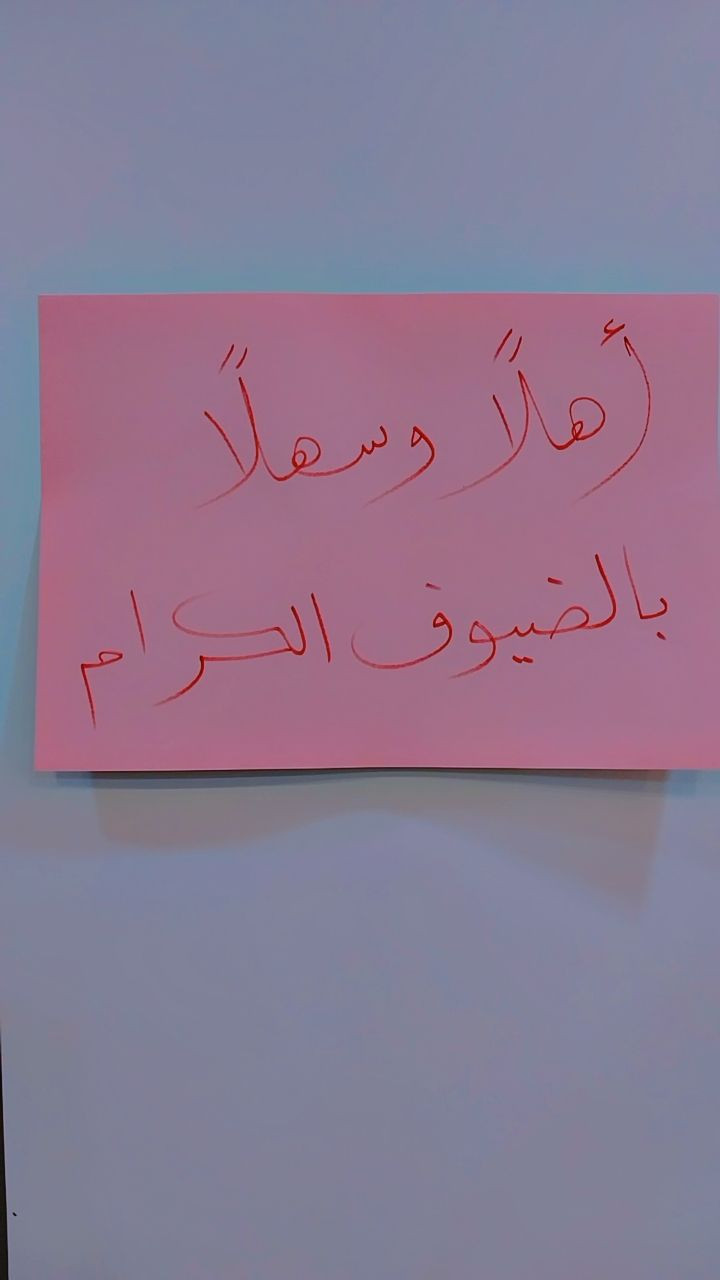 أهلًا وسهلًا
بالضيوف الكرام